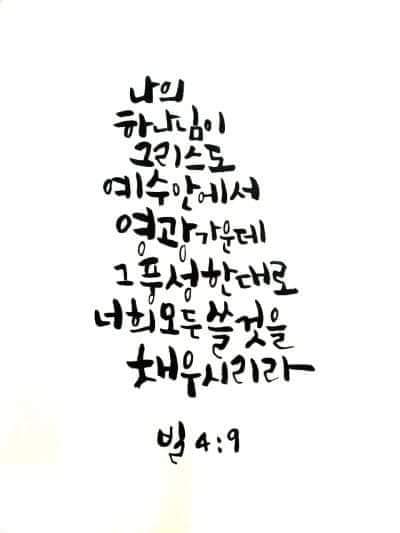 나의
하나님이
그리스도
예수안에서
영광가운데
그풍성한대로
너희모든쓸것을
채우시리라
빌 4:9